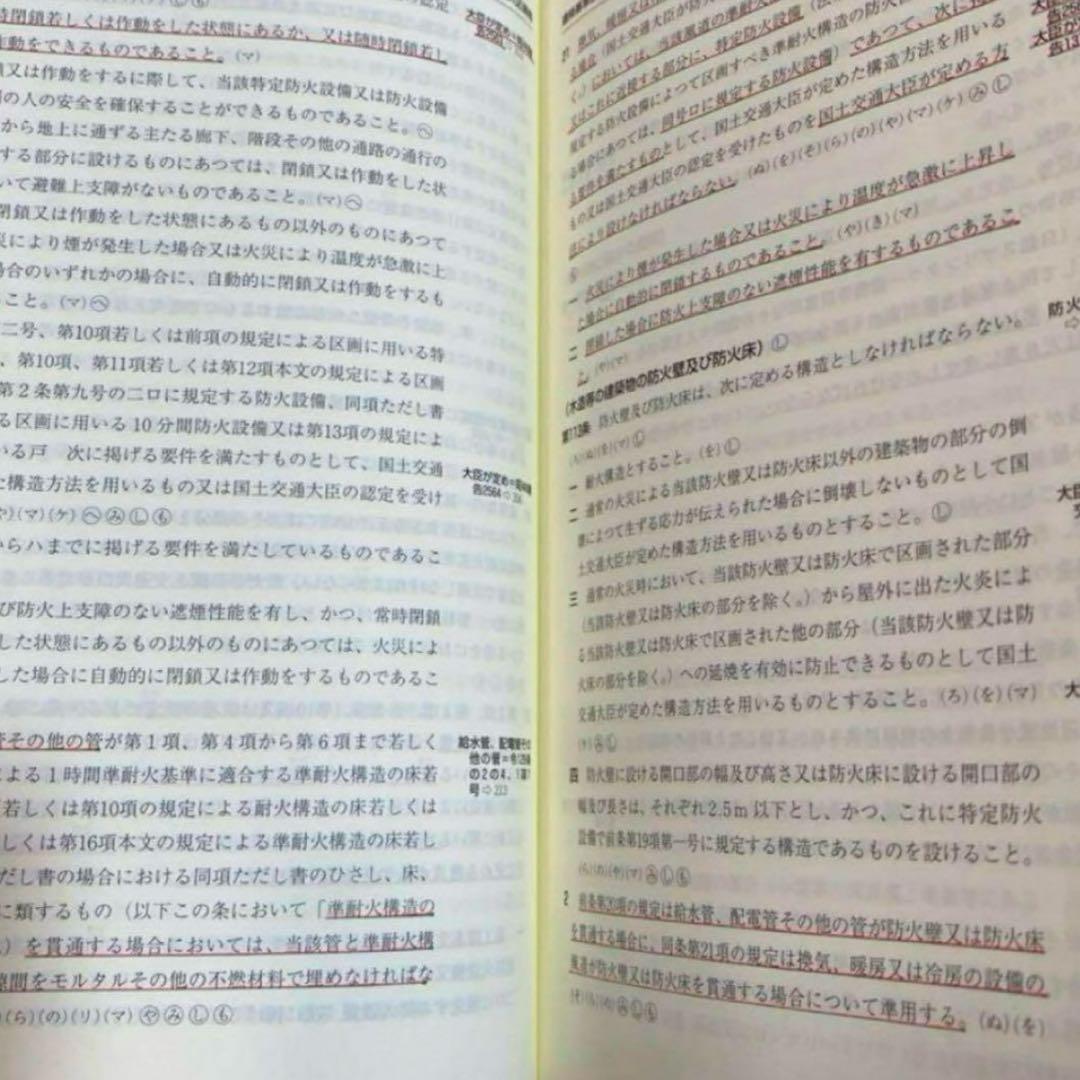 時閉鎖若しくは作動をした状態にあるか、又は随時閉鎖若し
作動をできるものであること。(マ)
鎖又は作動をするに際して、当該特定防火設備又は防火設備
の人の安全を確保することができるものであること。㋬
から地上に通ずる主たる廊下、階段その他の通路の通行の
する部分に設けるものにあつては、閉鎖又は作動をした状
いて避難上支障がないものであること。(マ)㋬
閉鎖又は作動をした状態にあるもの以外のものにあつて
災により煙が発生した場合又は火災により温度が急激に上
場合のいずれかの場合に、自動的に閉鎖又は作動をするも
こと。(マ)㋬
二号、第10項若しくは前項の規定による区画に用いる特
、第10項、第11項若しくは第12項本文の規定による区画
第2条第九号の二ロに規定する防火設備、同項ただし書
る区画に用いる10分間防火設備又は第13項の規定によ
いる戸 次に掲げる要件を満たすものとして、国土交通
た構造方法を用いるもの又は国土交通大臣の認定を受け
や)(マ)(ケ)
からハまでに掲げる要件を満たしているものであるこ
び防火上支障のない遮煙性能を有し、かつ、常時閉鎖
した状態にあるもの以外のものにあつては、火災によ
した場合に自動的に閉鎖又は作動をするものであるこ
管その他の管が第1項、第4項から第6項まで若しく
による1時間準耐火基準に適合する準耐火構造の床若
若しくは第10項の規定による耐火構造の床若しくは
しくは第16項本文の規定による準耐火構造の床若し
だし書の場合における同項ただし書のひさし、床、
に類するもの(以下この条において「準耐火構造の
)を貫通する場合においては、当該管と準耐火構
隙間をモルタルその他の不燃材料で埋めなければな
)(ら)(の)(リ)(マ)
大臣が定め
告2564⇨
給水管、配電管その
他の管
の2の4、1項
号⇨223
くは)においては、当該風道の準耐火構造の防火
又はこれに近接する部分に、特定防火設備
規定する防火設備によつて区画すべき準耐火構造の防火区
場合にあつては、同号ロに規定する防火設備)であつて、次に掲
る要件を満たすものとして、国土交通大臣が定めた構造方法を用いる
もの又は国土交通大臣の認定を受けたものを国土交通大臣が定める方
法により設けなければならない。(ぬ)(を)(そ)(ら)(の)(や)(マ)(ケ)
一 火災により煙が発生した場合又は火災により温度が急激に上昇し
た場合に自動的に閉鎖するものであること。(や)(き)(マ)
二 閉鎖した場合に防火上支障のない遮煙性能を有するものであるこ
と。(や)(マ)
(木造等の建築物の防火壁及び防火床)
第113条 防火壁及び防火床は、次に定める構造としなければならない。
一 耐火構造とすること。(を)
二 通常の火災による当該防火壁又は防火床以外の建築物の部分の倒
壊によつて生ずる応力が伝えられた場合に倒壊しないものとして国
土交通大臣が定めた構造方法を用いるものとすること。
三 通常の火災時において、当該防火壁又は防火床で区画された部分
(当該防火壁又は防火床の部分を除く。)から屋外に出た火炎によ
る当該防火壁又は防火床で区画された他の部分(当該防火壁又は防
火床の部分を除く。)への延焼を有効に防止できるものとして国土
交通大臣が定めた構造方法を用いるものとすること。(ろ)(を)(マ)
四 防火壁に設ける開口部の幅及び高さ又は防火床に設ける開口部の
幅及び長さは、それぞれ2.5m以下とし、かつ、これに特定防火
設備で前条第19項第一号に規定する構造であるものを設けること。
(ら)(の)(や)(マ)
2 前条第20項の規定は給水管、配電管その他の管が防火壁又は防火床
を貫通する場合に、同条第21項の規定は換気、暖房又は冷房の設備の
風道が防火壁又は防火床を貫通する場合について準用する。(ぬ)(を)
防火